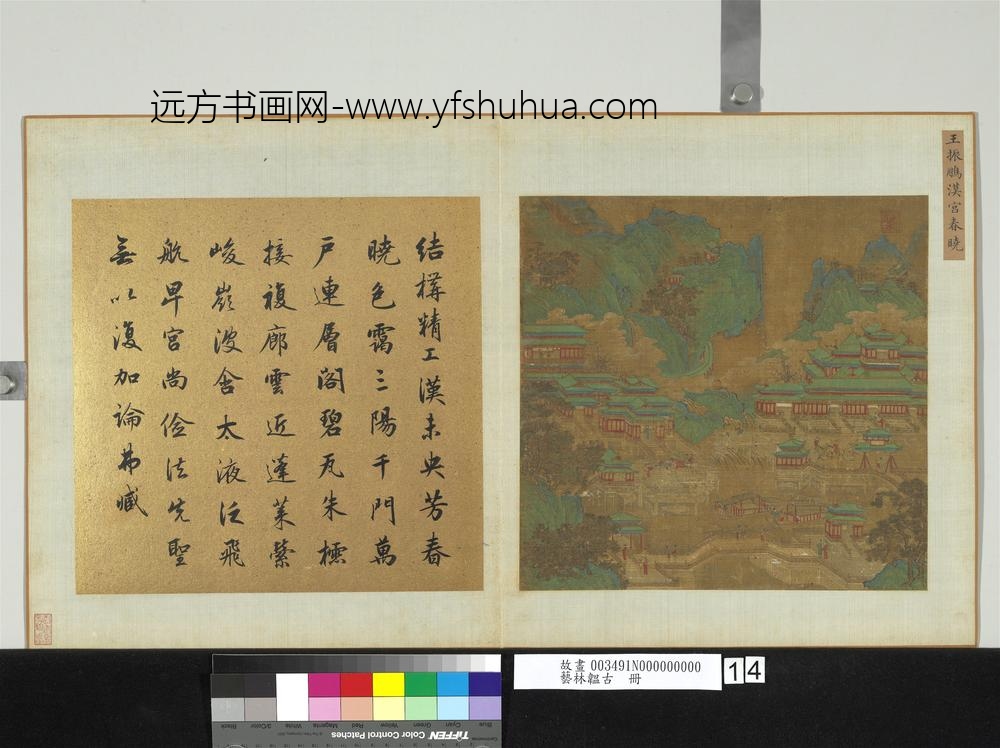 远方书画网-www.yfshuhua.com
王振鵬漢宮春曉
結構精工漢未央芳春
曉色靄三陽千門萬
戶連層閣碧瓦朱櫺
接複廊雲近蓬萊縈
峻嶺波含太液泛飛
航卑宮尚儉法先聖
無以復加論弗臧
故畫 003491N000000000
藝林韞古 冊
14
Black
3/Color
White
Magenta
Red
Yellow
Green
Cyan
Blue
TIFFEN Color Control Patches